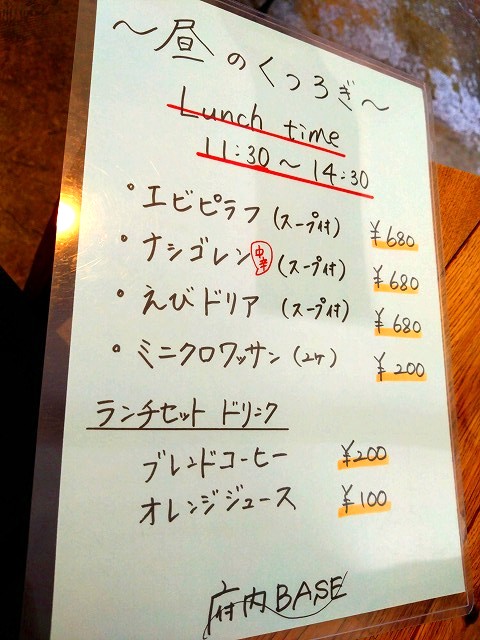 ～昼のくつろぎ～
Lunch time
11:30～14:30
・エビピラフ(スープ付) ¥680
・ナシゴレン 中辛 (スープ付) ¥680
・えびドリア (スープ付) ¥680
・ミニクロワッサン(2ケ) ¥200
ランチセット ドリンク
ブレンドコーヒー ¥200
オレンジジュース ¥100
府内BASE